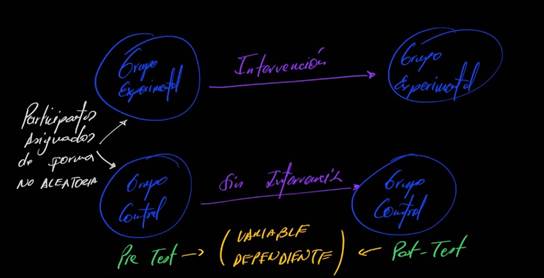 Grupo
Experimental
Intervención
Grupo
Experimental
Participantes
Asignados
de forma
NO ALEATORIA
Grupo
Control
Sin Intervención
Grupo
Control
Pre Test → (VARIABLE
DEPENDIENTE) ← Post-Test